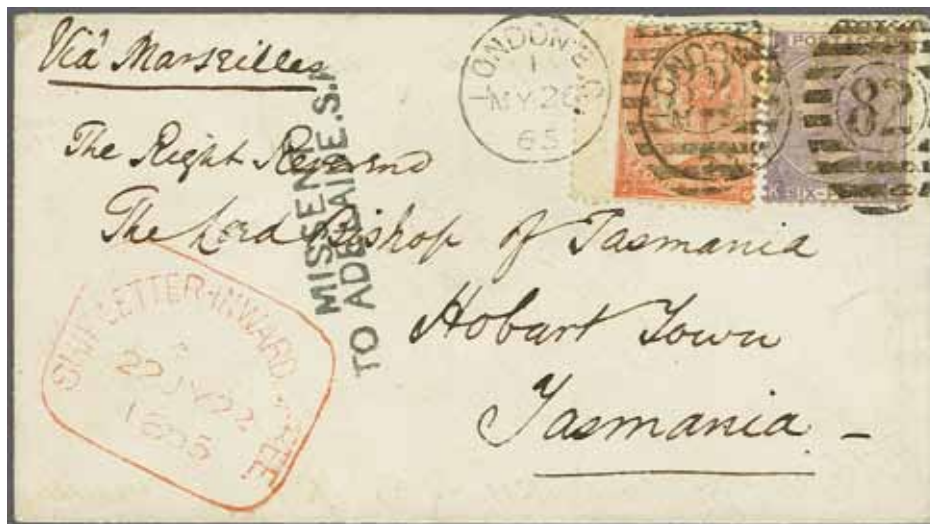 Via Marseilles
LONDON·E.C.
1
MY 26
65
82
POSTAGE
K SIX-P
The Right Reverend
The Lord Bishop of Tasmania
Hobart Town
Tasmania
MISSENT
TO ADELAIDE.S.A
SHIP LETTER·INWARD·FREE
22 JY 22
1865